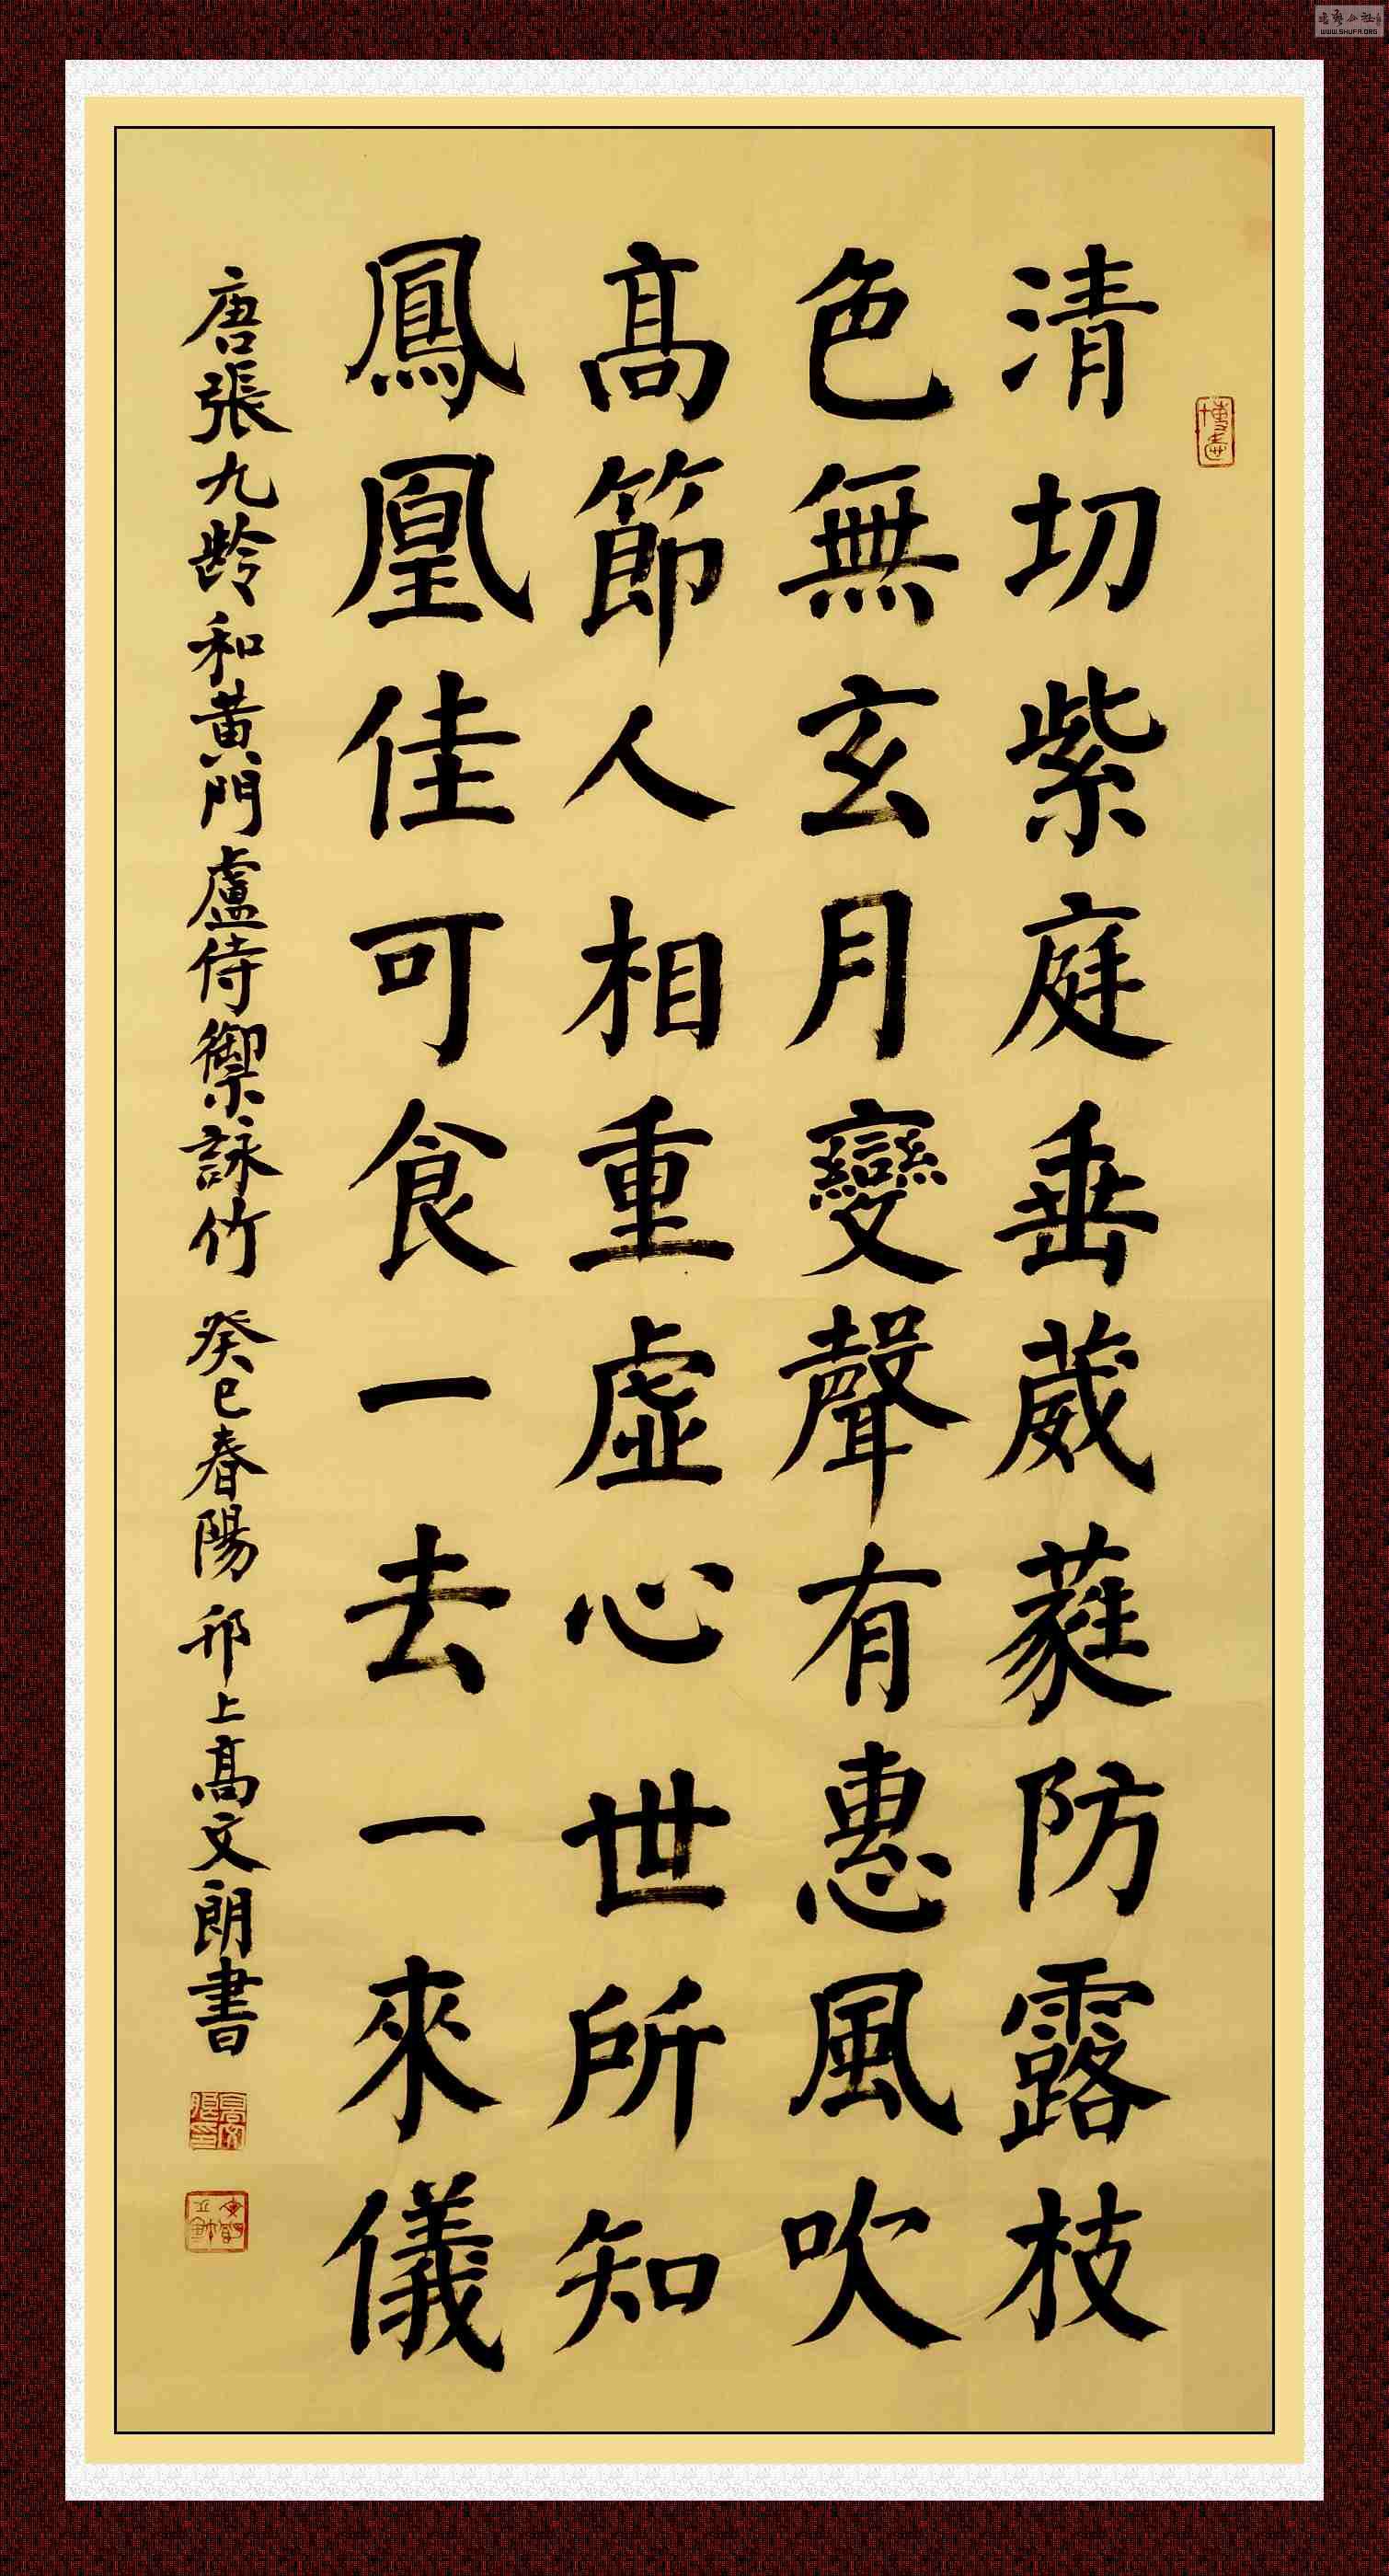 清切紫庭垂葳蕤防露枝
色無玄月變聲有惠風吹
高節人相重虛心世所知
鳳凰佳可食一去一來儀
唐張九齡和黃門盧侍禦詠竹 癸巳春陽 邗上高文朗書
WWW.SHUFA.ORG